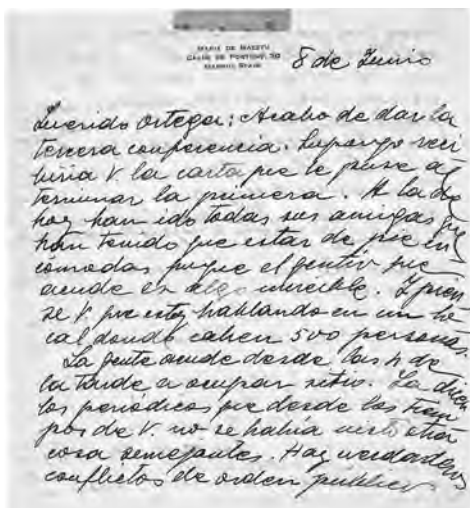 MARÍA DE MAEZTU
CALLE DE FORTUNY, 30
MADRID, SPAIN
8 de Junio
Querido Ortega: Acabo de dar la
tercera conferencia. Supongo reci
biría V. la carta que le puse al
terminar la primera. A la de
hoy han ido todas sus amigas que
han tenido que estar de pie in
cómodas porque el gentío que
acude es algo increíble. Y pien
se V. que estoy hablando en un lo
cal donde caben 500 personas.
La gente acude desde las 4 de
la tarde a ocupar sitio. Ya dicen
los periódicos que desde los tiem
pos de V. no se había visto otra
cosa semejantes. Hay verdaderos
conflictos de orden público